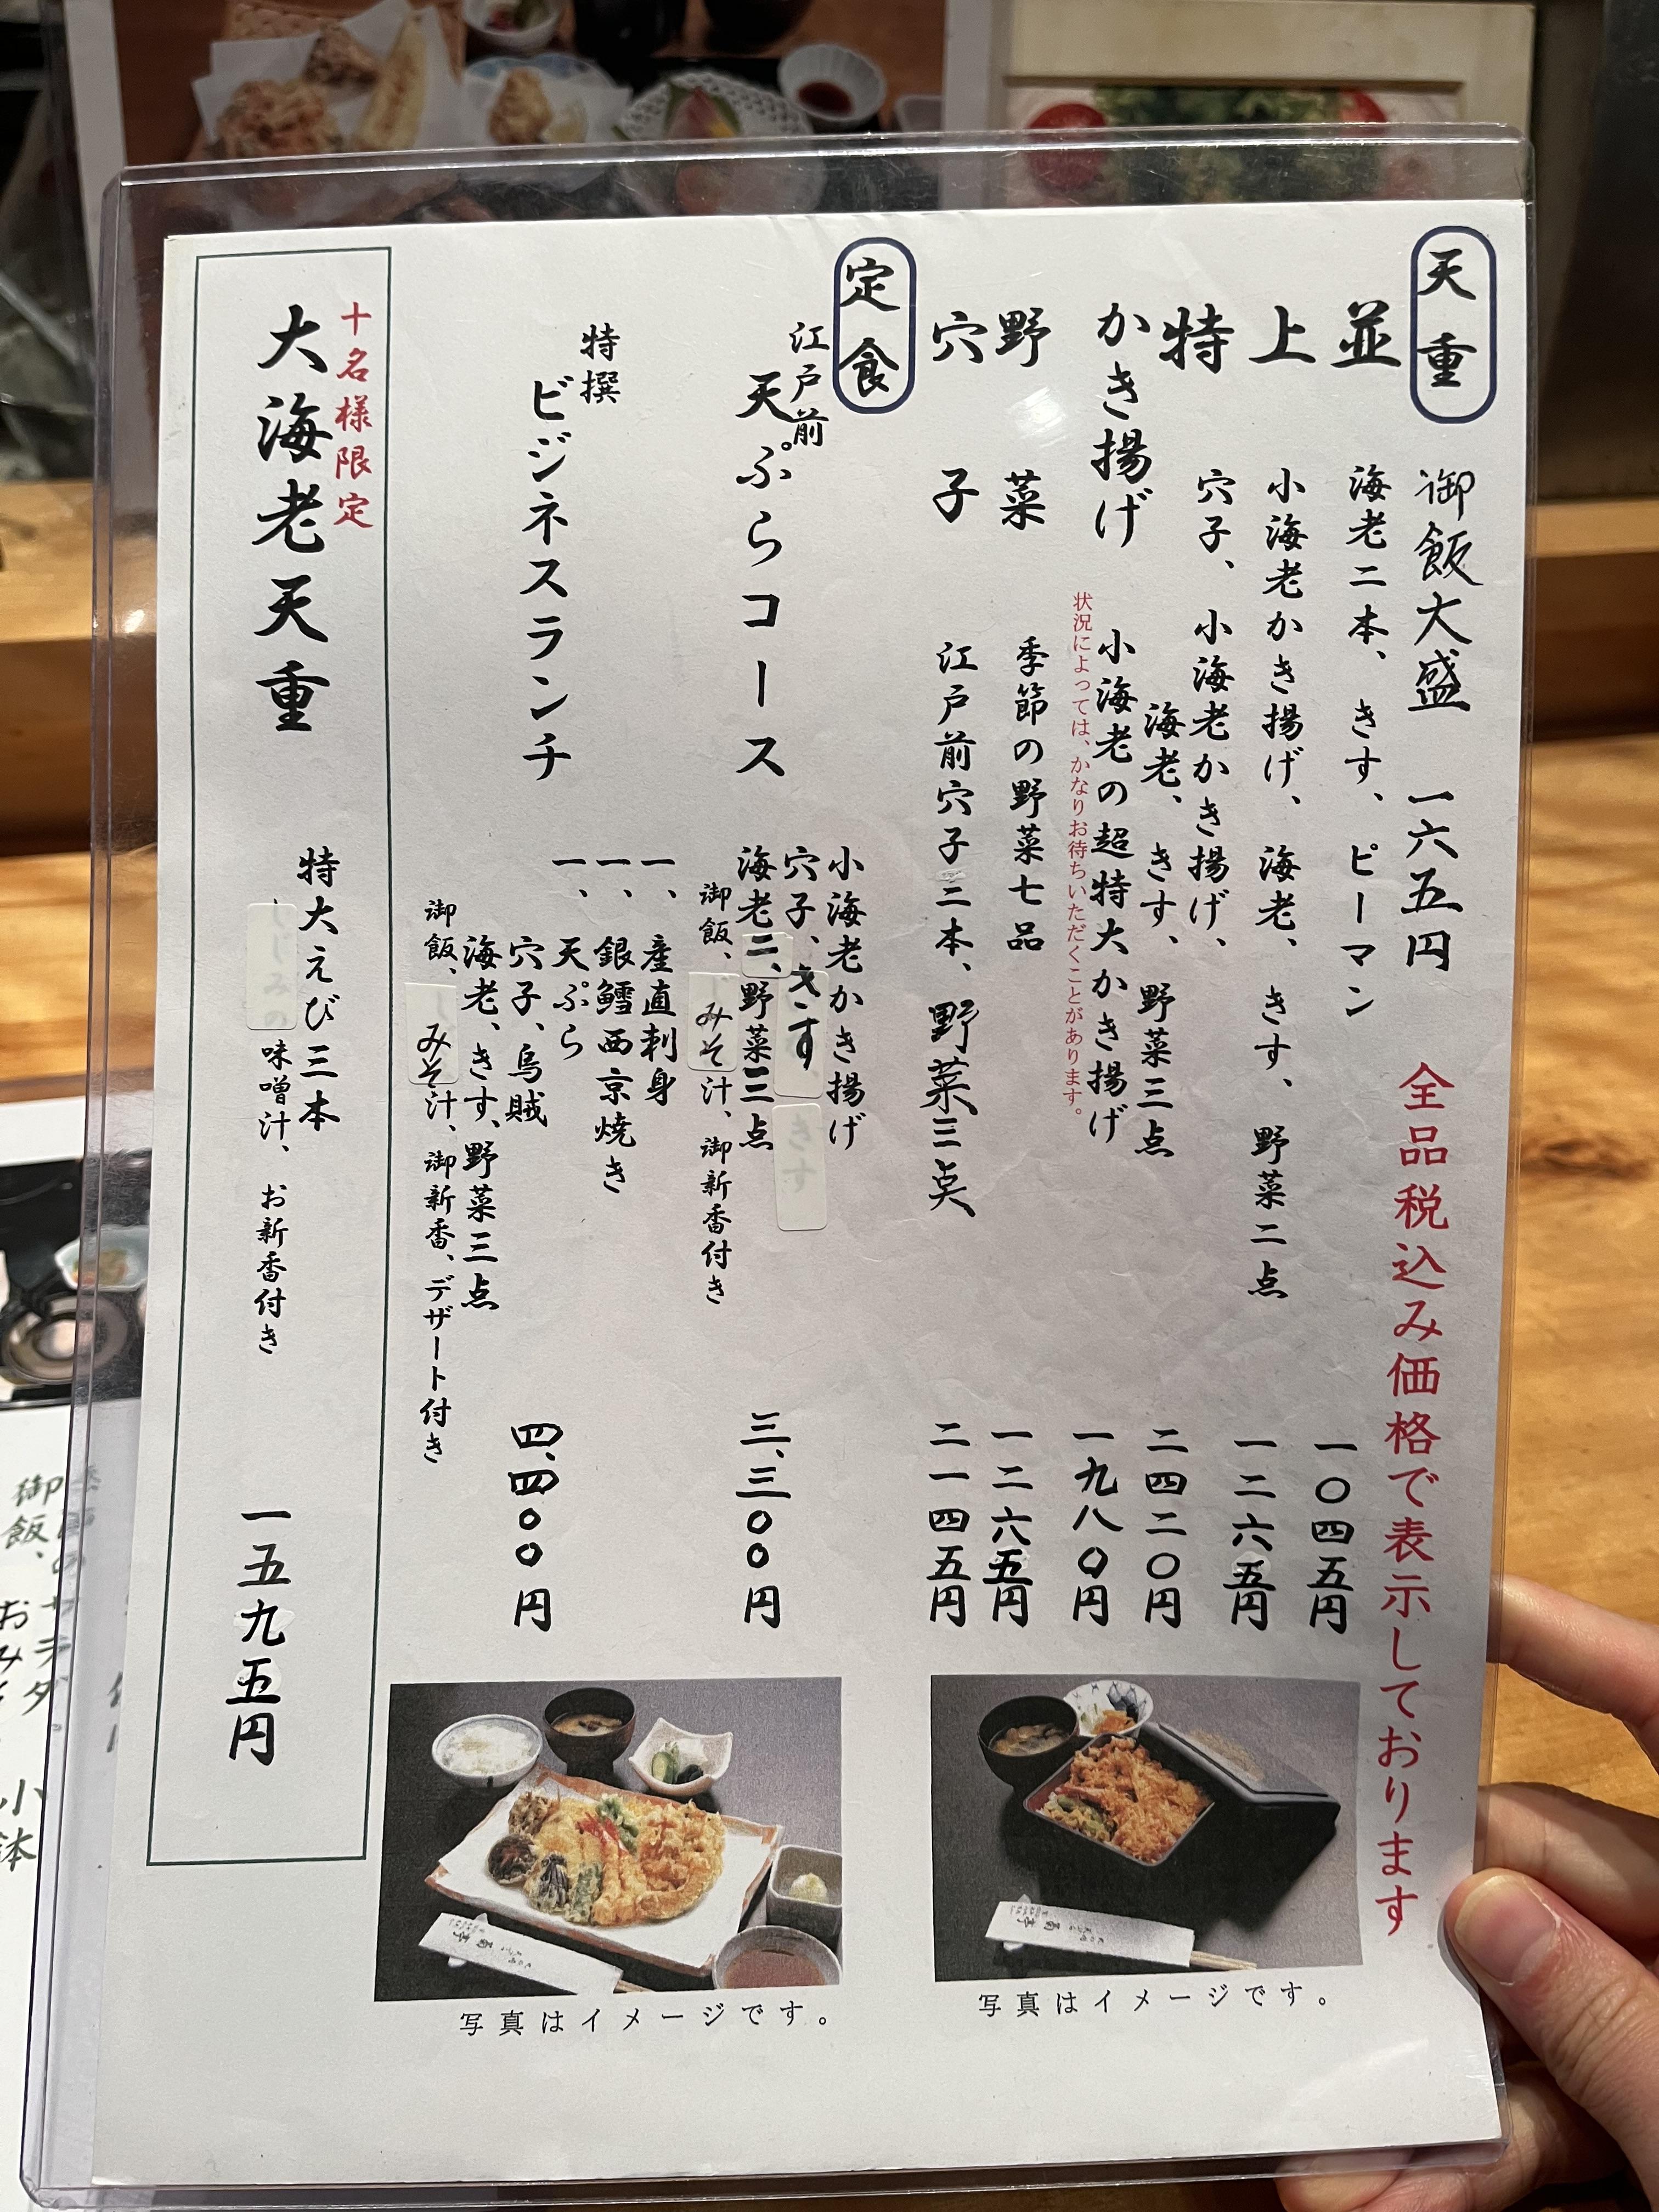 天重
御飯大盛 一六五円
全品税込み価格で表示しております
並
海老二本、きす、ピーマン
一〇四五円
上
小海老かき揚げ、海老、きす、野菜二点
一二六五円
特
穴子、小海老かき揚げ、
海老、きす、野菜三点
二四二〇円
かき揚げ
小海老の超特大かき揚げ
状況によっては、かなりお待ちいただくことがあります。
一九八〇円
野菜
季節の野菜七品
一二六五円
穴子
江戸前穴子二本、野菜三点
二一四五円
定食
江戸前
天ぷらコース
小海老かき揚げ
穴子、きす、
海老二、野菜三点
御飯、みそ汁、御新香付き
三、三〇〇円
特撰
ビジネスランチ
一、産直刺身
一、銀鱈西京焼き
一、天ぷら
穴子、烏賊
海老、きす、野菜三点
御飯、みそ汁、御新香、デザート付き
四、四〇〇円
十名様限定
大海老天重
特大えび三本
味噌汁、お新香付き
一五九五円
写真はイメージです。
写真はイメージです。
御飯、
小鉢